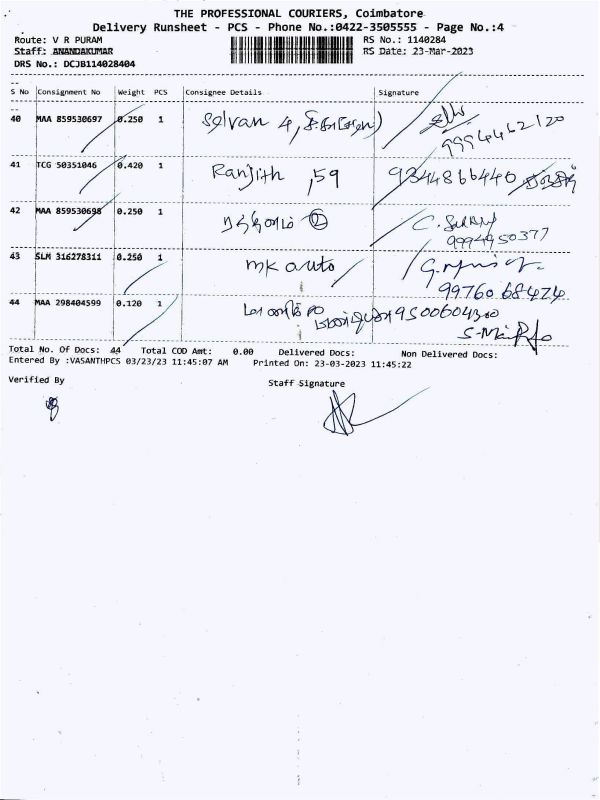 THE PROFESSIONAL COURIERS, Coimbatore
Delivery Runsheet - PCS - Phone No.:0422-3505555 - Page No.:4
Route: V R PURAM
RS No.: 1140284
Staff: ANANDAKUMAR
RS Date: 23-Mar-2023
DRS No.: DCJB114028404
S No Consignment No Weight PCS Consignee Details Signature
40 MAA 859530697 0.250 1 Selvan 4,
9994462120
41 TCG 50351046 0.420 1 Ranjith ,59 9344866440
42 MAA 859530698 0.250 1 2
9994950377
43 SLM 316278311 0.250 1 MK auto
99760 68474
44 MAA 298404599 0.120 1
9500604300
Total No. Of Docs: 44 Total COD Amt: 0.00 Delivered Docs: Non Delivered Docs:
Entered By :VASANTHPCS 03/23/23 11:45:07 AM Printed On: 23-03-2023 11:45:22
Verified By Staff Signature